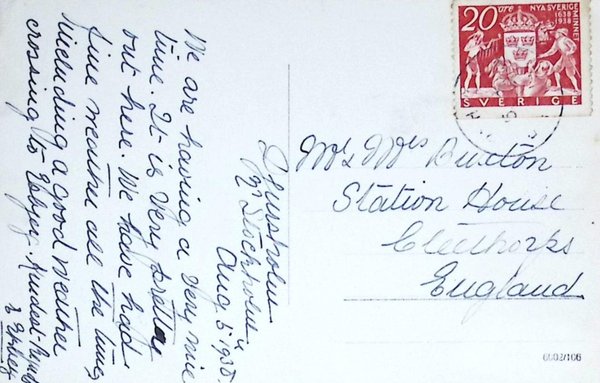 Djursholm
nr Stockholm
Aug. 5 1938.
We are having a very nice
time. It is very pretty
out here. We have had
fine weather all the time
including a good weather
crossing to Esbjerg. Kindest
20 öre
NYA SVERIGE
MINNET
1638
1938
SVERIGE
Mr Mrs Buxton
Station House
Cleethorps
England
6002/106